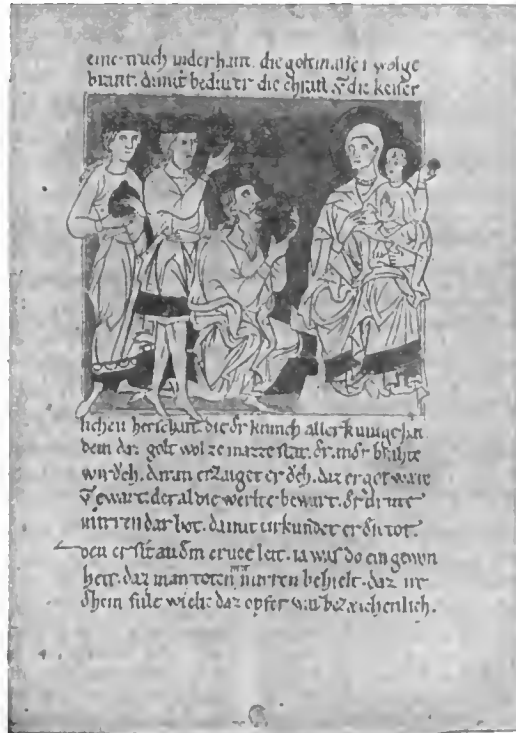 eine truch inder hant. die golt in alle wolge
brant. damit bediut er die chraft die keiser
lichen herschaft. die der kunich aller kunige hat
dem daz golt wol ze mazze stat. der ander brahte
wiroch. daran erzaiget er doch. daz er got ware
gewart. der al die werlte bewart. der dritte
mirren dar bot. damit urkundet er den tot.
den er sit an dem cruce leit. ia was do ein gewon
heit. daz man toten mit mirren behielt. daz ir
dhein fule wielt. daz opfer was bezeichenlich.